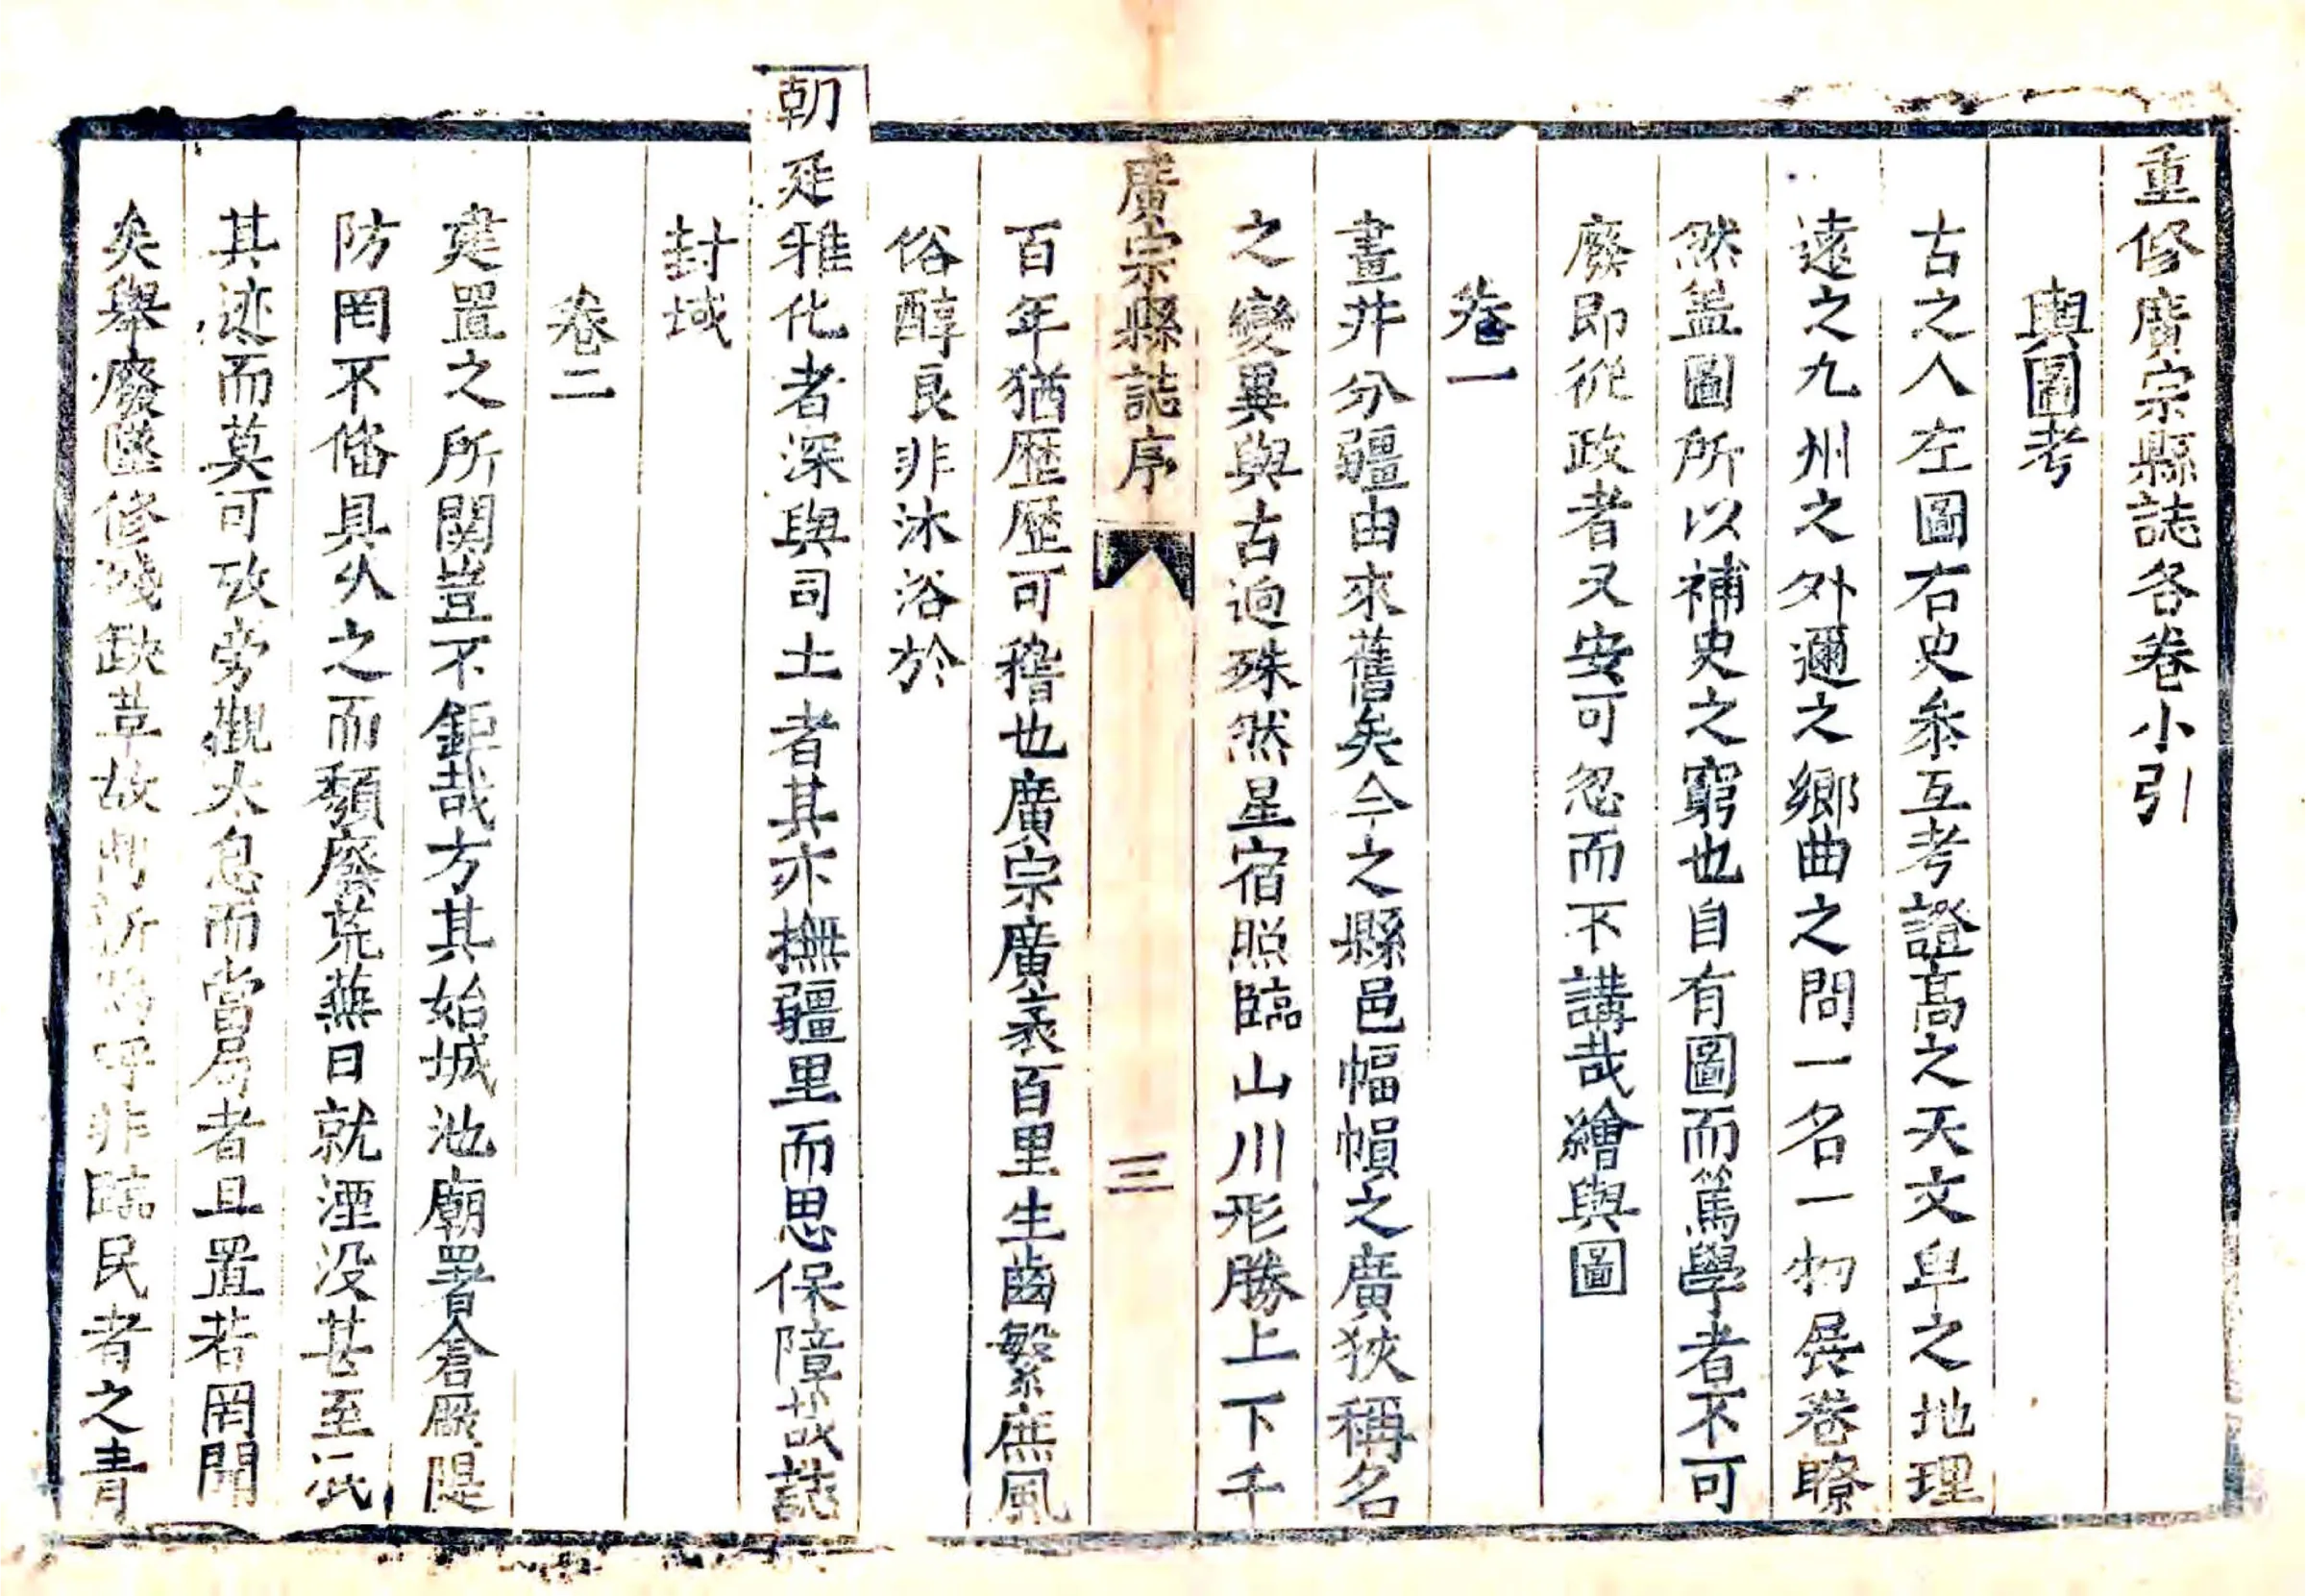 重修廣宗縣誌各卷小引
輿圖考
古之人左圖右史叅互考證高之天文卑之地理
遠之九州之外邇之鄉曲之間一名一物展卷瞭
然葢圖所以補史之窮也自有圖而篤學者不可
廢即從政者又安可忽而不講哉繪輿圖
卷一
畫井分疆由來舊矣今之縣邑幅幀之廣狹稱名
之變異與古逈殊然星宿照臨山川形勝上下千
廣宗縣誌序
三
百年猶歷歷可稽也廣宗廣袤百里生齒繁庶風
俗醇良非沐浴於
朝廷雅化者深與司土者其亦撫疆里而思保障哉誌
封域
卷二
建置之所関豈不鉅哉方其始城池廟署倉厫隄
防罔不俻具久之而頽廢荒蕪日就湮没甚至泯
其迹而莫可攷旁觀太息而當局者且置若罔聞
矣舉廢墜修殘缺革故鼎新嗚呼非臨民者之責